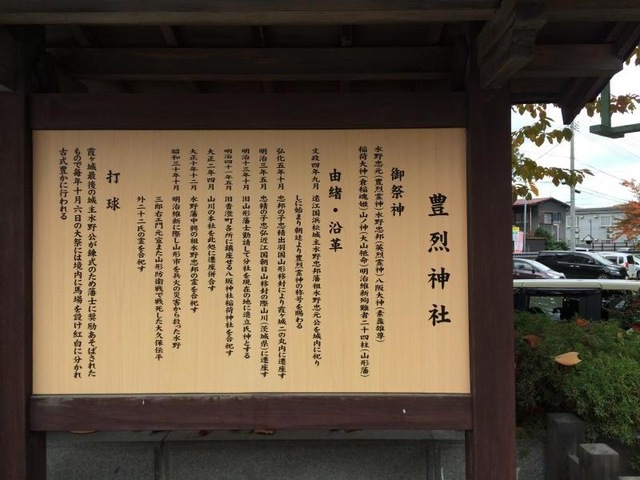 豊烈神社
御祭神
水野忠元(豊烈霊神)水野忠邦(英烈霊神)八坂大神(素盞雄尊)
稲荷大神(倉稲魂姫)山ノ神(大山祗命)明治維新殉難者二十四柱(山形藩)
由緒・沿革
文政四年九月 遠江国浜松城主水野忠邦藩祖水野忠元公を城内に祀り
しに始まり朝廷より豊烈霊神の称号を賜わる
弘化五年十月 忠邦の子忠精出羽国山形移封により霞ヶ城二の丸内に遷座す
明治三年五月 忠精の子忠弘近江国朝日山移封の際山川(茨城県)に遷座す
明治十三年十月 旧山形藩士勤請して分社を現在の地に造立氏神とする
明治四十一年五月 旧香澄町各所に鎮座せる八坂神社稲荷神社を合祀す
大正二年四月 山川の本社を此処に遷座併合す
大正十年十二月 水野藩中興の祖水野忠邦の霊を合祀す
昭和三十年十月 明治維新に際し山形市を兵火の災害から救った水野
三郎右エ門元宣また山形防衛戦で戦死した大久保伝平
外二十二氏の霊を合祀す
打球
霞ヶ城最後の城主水野公が錬式のため藩士に奨励あそばされた
もので毎年十月六日の大祭には境内に馬場を設け紅白に分かれ
古式豊かに行われる